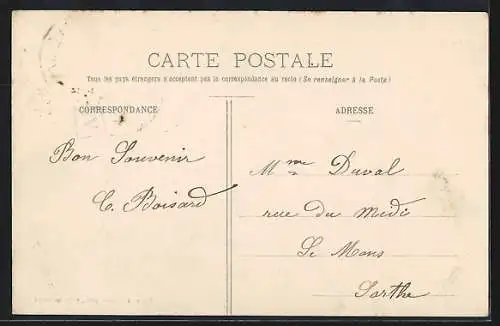 CARTE POSTALE
Tous les pays étrangers n'acceptent pas la correspondance au recto (Se renseigner à la Poste)
CORRESPONDANCE
Bon Souvenir
C. Boisard
ADRESSE
Mme Duval
rue du Midi
Le Mans
Sarthe